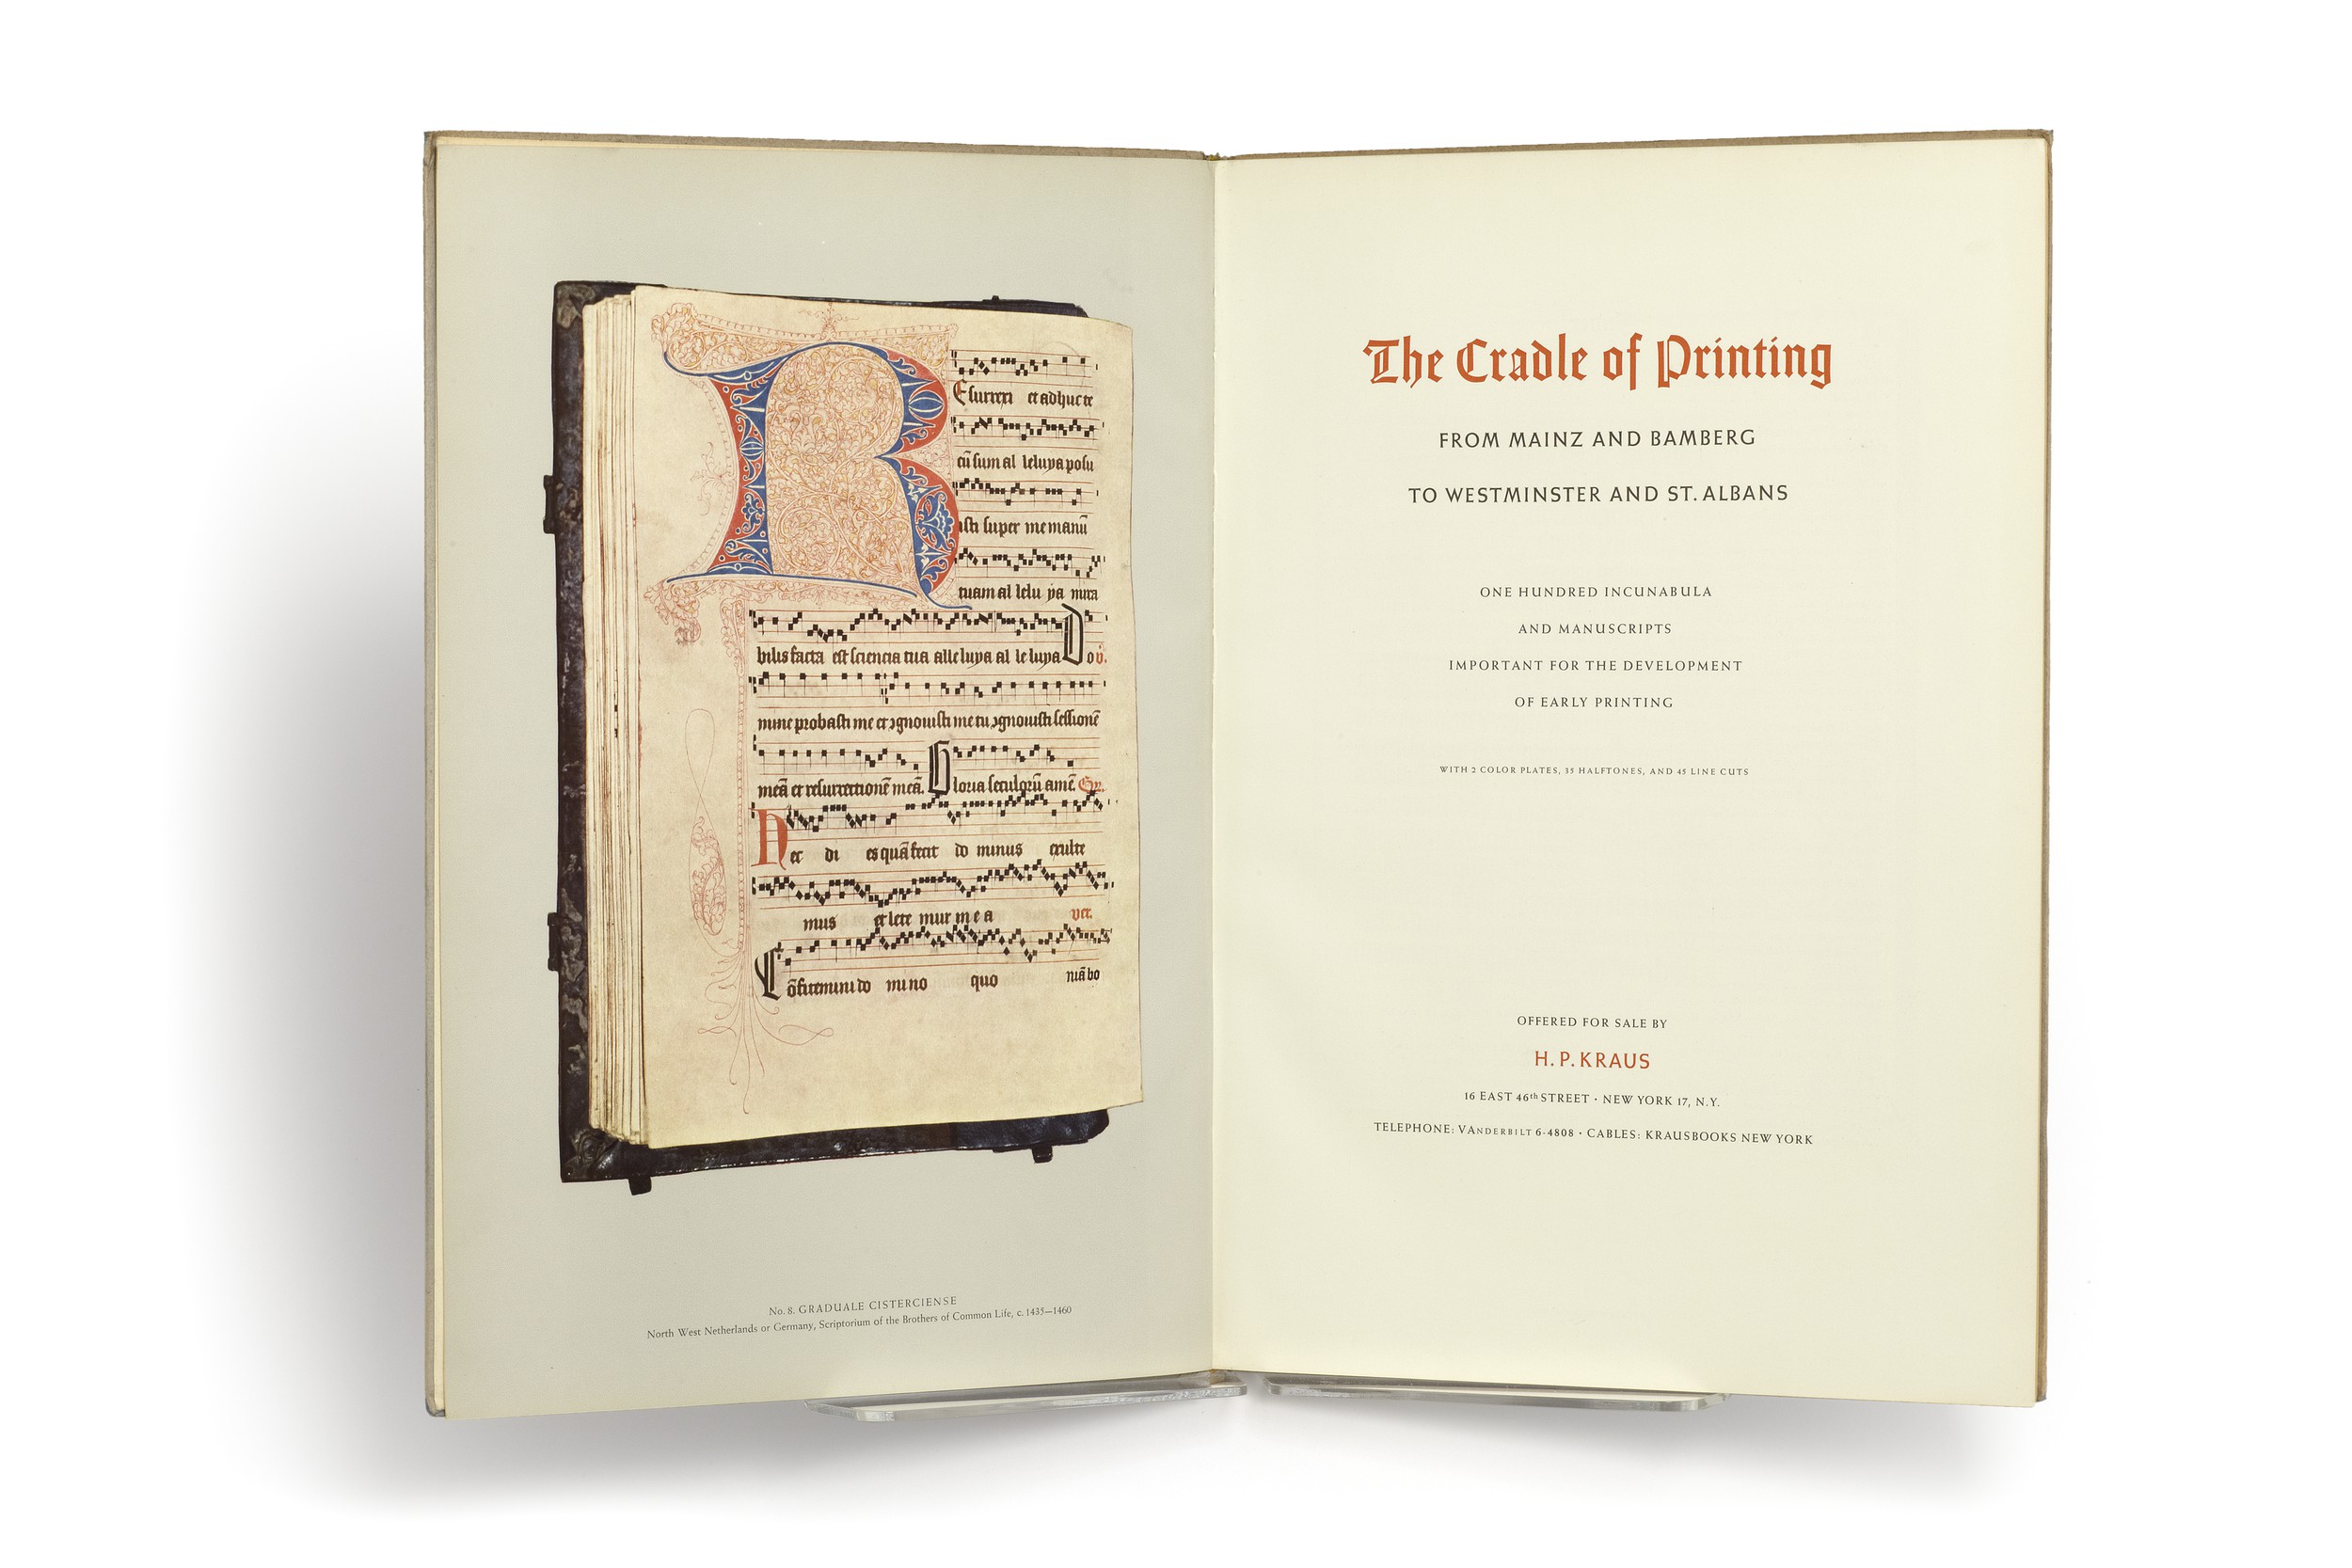 Esurrexi et adhuc te
cū sum al leluya posu
isti super me manū
tuam al lelu ya mira
bilis facta est sciencia tua alleluya al le luya Do v̄.
mine probasti me et ꝯgnouisti me tu ꝯgnouisti sessionē
meā et resurrectionē meā. Gloria seculorū amē. Gr.
Hec di es quā fecit do minus exulte
mus et lete mur in e a ver.
Cōfitemini do mino quo niā bo
No. 8. GRADUALE CISTERCIENSE
North West Netherlands or Germany, Scriptorium of the Brothers of Common Life, c. 1435—1460
The Cradle of Printing
FROM MAINZ AND BAMBERG
TO WESTMINSTER AND ST. ALBANS
ONE HUNDRED INCUNABULA
AND MANUSCRIPTS
IMPORTANT FOR THE DEVELOPMENT
OF EARLY PRINTING
WITH 2 COLOR PLATES, 35 HALFTONES, AND 45 LINE CUTS
OFFERED FOR SALE BY
H. P. KRAUS
16 EAST 46th STREET · NEW YORK 17, N.Y.
TELEPHONE: VANDERBILT 6-4808 · CABLES: KRAUSBOOKS NEW YORK